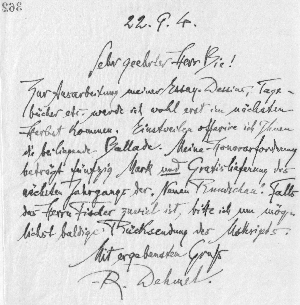 363
22.9.4.
Sehr geehrter Herr Bie!
Zur Ausarbeitung meiner Essay-Dessins, Tage-
bücher etc. werde ich wohl erst im nächsten
Herbst kommen. Einstweilen offerire ich Ihnen
die beiliegende Ballade. Meine Honorarforderung
beträgt fünfzig Mark und Gratislieferung des
nächsten Jahrgangs der "Neuen Rundschau". Falls
das Herrn Fischer zuviel ist, bitte ich um mög-
lichst baldige Rücksendung des Mskripts.
Mit ergebenstem Gruß
R. Dehmel.